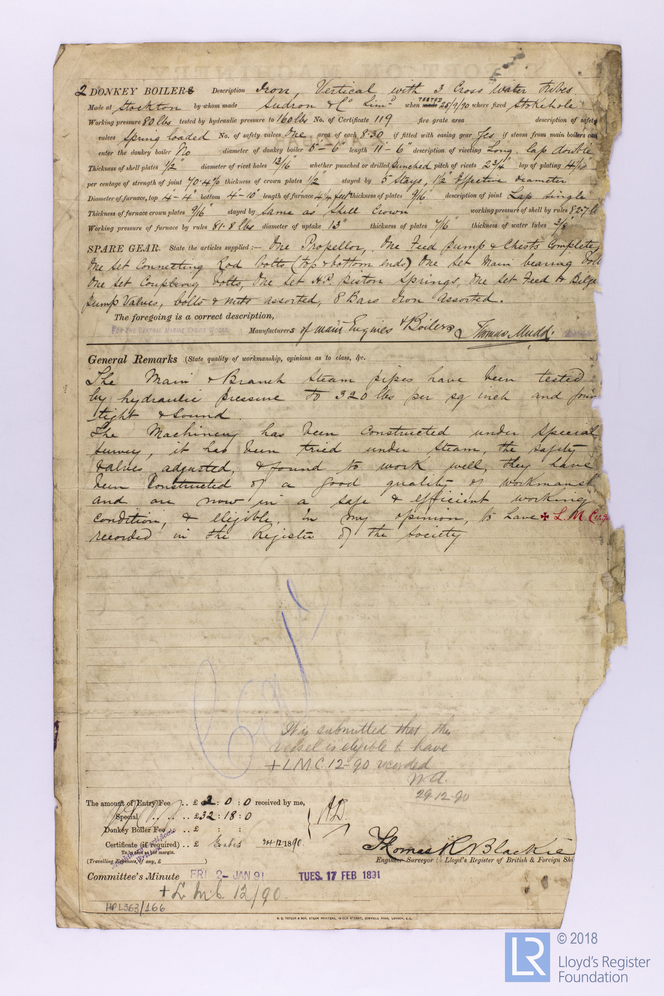 2 DONKEY BOILERS Description Iron, Vertical with 3 Cross Water Tubes
Made at Stockton by whom made Sudron & Co Limd when made TESTED 25/9/90 where fixed Stokehole
Working pressure 80 lbs tested by hydraulic pressure to 160 lbs No. of Certificate 119 fire grate area description of safety
valves Spring loaded No. of safety valves One area of each 8.30 if fitted with easing gear Yes if steam from main boilers can
enter the donkey boiler No diameter of donkey boiler 5'-6" length 11'-6" description of riveting Long. lap double
Thickness of shell plates 1/2" diameter of rivet holes 13/16" whether punched or drilled punched pitch of rivets 2 3/4" lap of plating
per centage of strength of joint 70.4% thickness of crown plates 1/2" stayed by 5 Stays, 1 1/2" Effective diameter
Diameter of furnace, top 4'-4" bottom 4'-10" length of furnace thickness of plates 9/16" description of joint Lap single
Thickness of furnace crown plates 9/16" stayed by Same as Shell Crown working pressure of shell by rules
Working pressure of furnace by rules 81.8 lbs diameter of uptake 13" thickness of plates 7/16" thickness of water tubes 3/8"
SPARE GEAR. State the articles supplied:- One Propellor, One Feed pump & Chests Complete,
One set Connecting Rod bolts (top & bottom ends) One set Main bearing
One set Coupling bolts, One set H.P. Piston Springs, One set Feed & Bilge
pump Valves, bolts & nuts assorted, 8 Bars Iron Assorted.
The foregoing is a correct description,
Manufacturers of main Engines & Boilers Thomas Mudd.
General Remarks (State quality of workmanship, opinions as to class, &c.
The Main & Branch Steam pipes have been tested
by hydraulic pressure to 320 lbs per sq inch and
tight & sound.
The Machinery has been constructed under special
survey, it has been tried under steam, the safety
valves adjusted, & found to work well, they have
been constructed of a good quality of
and are now in a safe & efficient working
condition, & eligible, in my opinion, to have ✠ L.M.C.
recorded in the Register of the Society
It is submitted that this
vessel is eligible to have
+LMC 12-90 recorded
29.12.90
The amount of Entry Fee .. £ 2 : 0 : 0 received by me,
Special .. .. £32 : 18 : 0
Donkey Boiler Fee .. £ : :
Certificate (if required) .. £ 1890.
(Travelling Expenses, if any, £ )
Thomas R Blackie
Engineer Surveyor Lloyd's Register of British & Foreign
Committee's Minute FRI 2- JAN 91 TUES. 17 FEB 1891
+ L M C 12/90
HPL363/166
© 2018
LR Lloyd's Register
Foundation